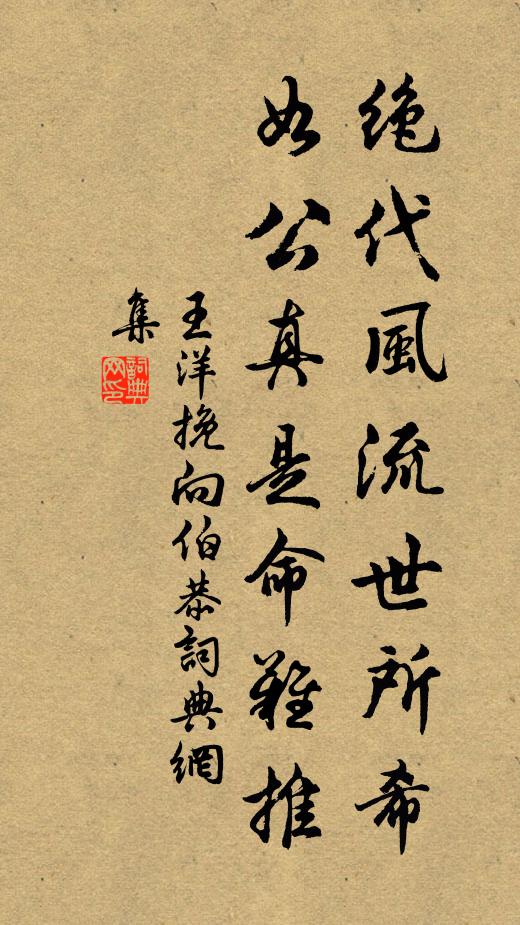 絶代風流世所希
如公真是命難推
王洋挽向伯恭詞典網
集
詞典
网印